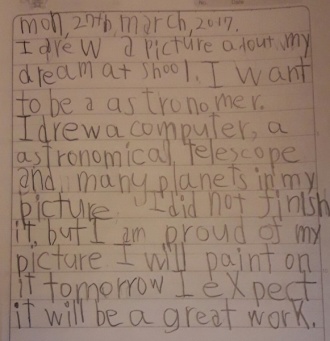 mon, 27th, march, 2017.
I drew a picture about my
dream at shool. I want
to be a astronomer.
I drew a computer, a
astronomical telescope
and many planets in my
picture. I did not finish
it but I am proud of my
picture I will paint on
it tomorrow I expect
it will be a great work.